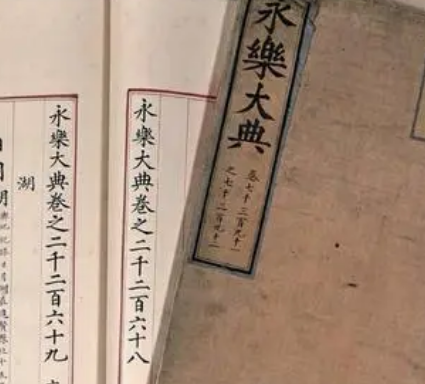 永樂大典
卷七千三百九十一
之七千三百九十二
永樂大典卷之二千二百六十八
永樂大典卷之二千二百六十九
湖